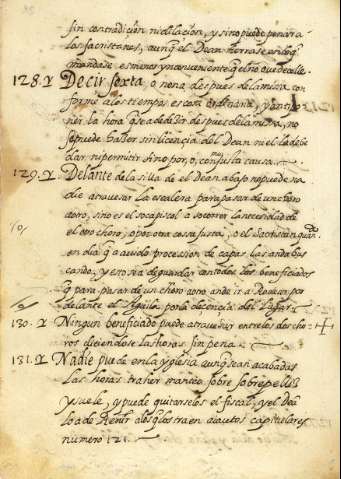 sin contradición ni delación, y sino puede penar a
las sacristanes, aunq el Dean
menos ynconveniente q el no que de alle.
128. Y Decir sexta, o nona despues de la missa con
forme a los tiempos es cosa ordinaria, y anti
la hora q sea de dezir despues de la missa, no
se puede haser sin licencia del Dean ni el la debe
dar ni permitir sino por, o, con justa causa.
129. Y Delante de la silla de el Dean abajo no puede na
die atravesar la escalera para pasar de un choro
a otro, sino es el socapiscol a socorrer la necesidad de
el otro choro, o por otra cosa justa, o el Sachristan quando
en dia q a avido procession de capas las anda bus
cando, y esto sea de guardar con todos los beneficiados
q para pasar de un choro a otro an de ir a Rodear por
delante el Aguila por la decencia del Lugar
130. Y Ningun beneficiado puede atravesar entre los dos cho
ros diciendose las horas sin pena.
131. Y Nadie puede en la yglesia aunq sean acabadas
las horas traher manteo sobre sobrepelliz
y suele, y puede quitarselos el fiscal, y el Dea
lo a de Renir a los q los traen autos capitulares
numero 121